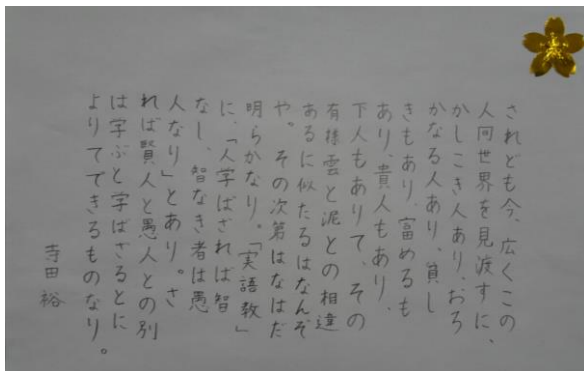 されども今、広くこの
人間世界を見渡すに、
かしこき人あり、おろ
かなる人あり、貧し
きもあり、富めるも
あり、貴人もあり、
下人もありて、その
有様雲と泥との相違
あるに似たるはなんぞ
や。その次第はなはだ
明らかなり。「実語教」
に、「人学ばざれば智
なし、智なき者は愚
人なり」とあり。さ
れば賢人と愚人との別
は学ぶと学ばざるとに
よりてできるものなり。
寺田裕